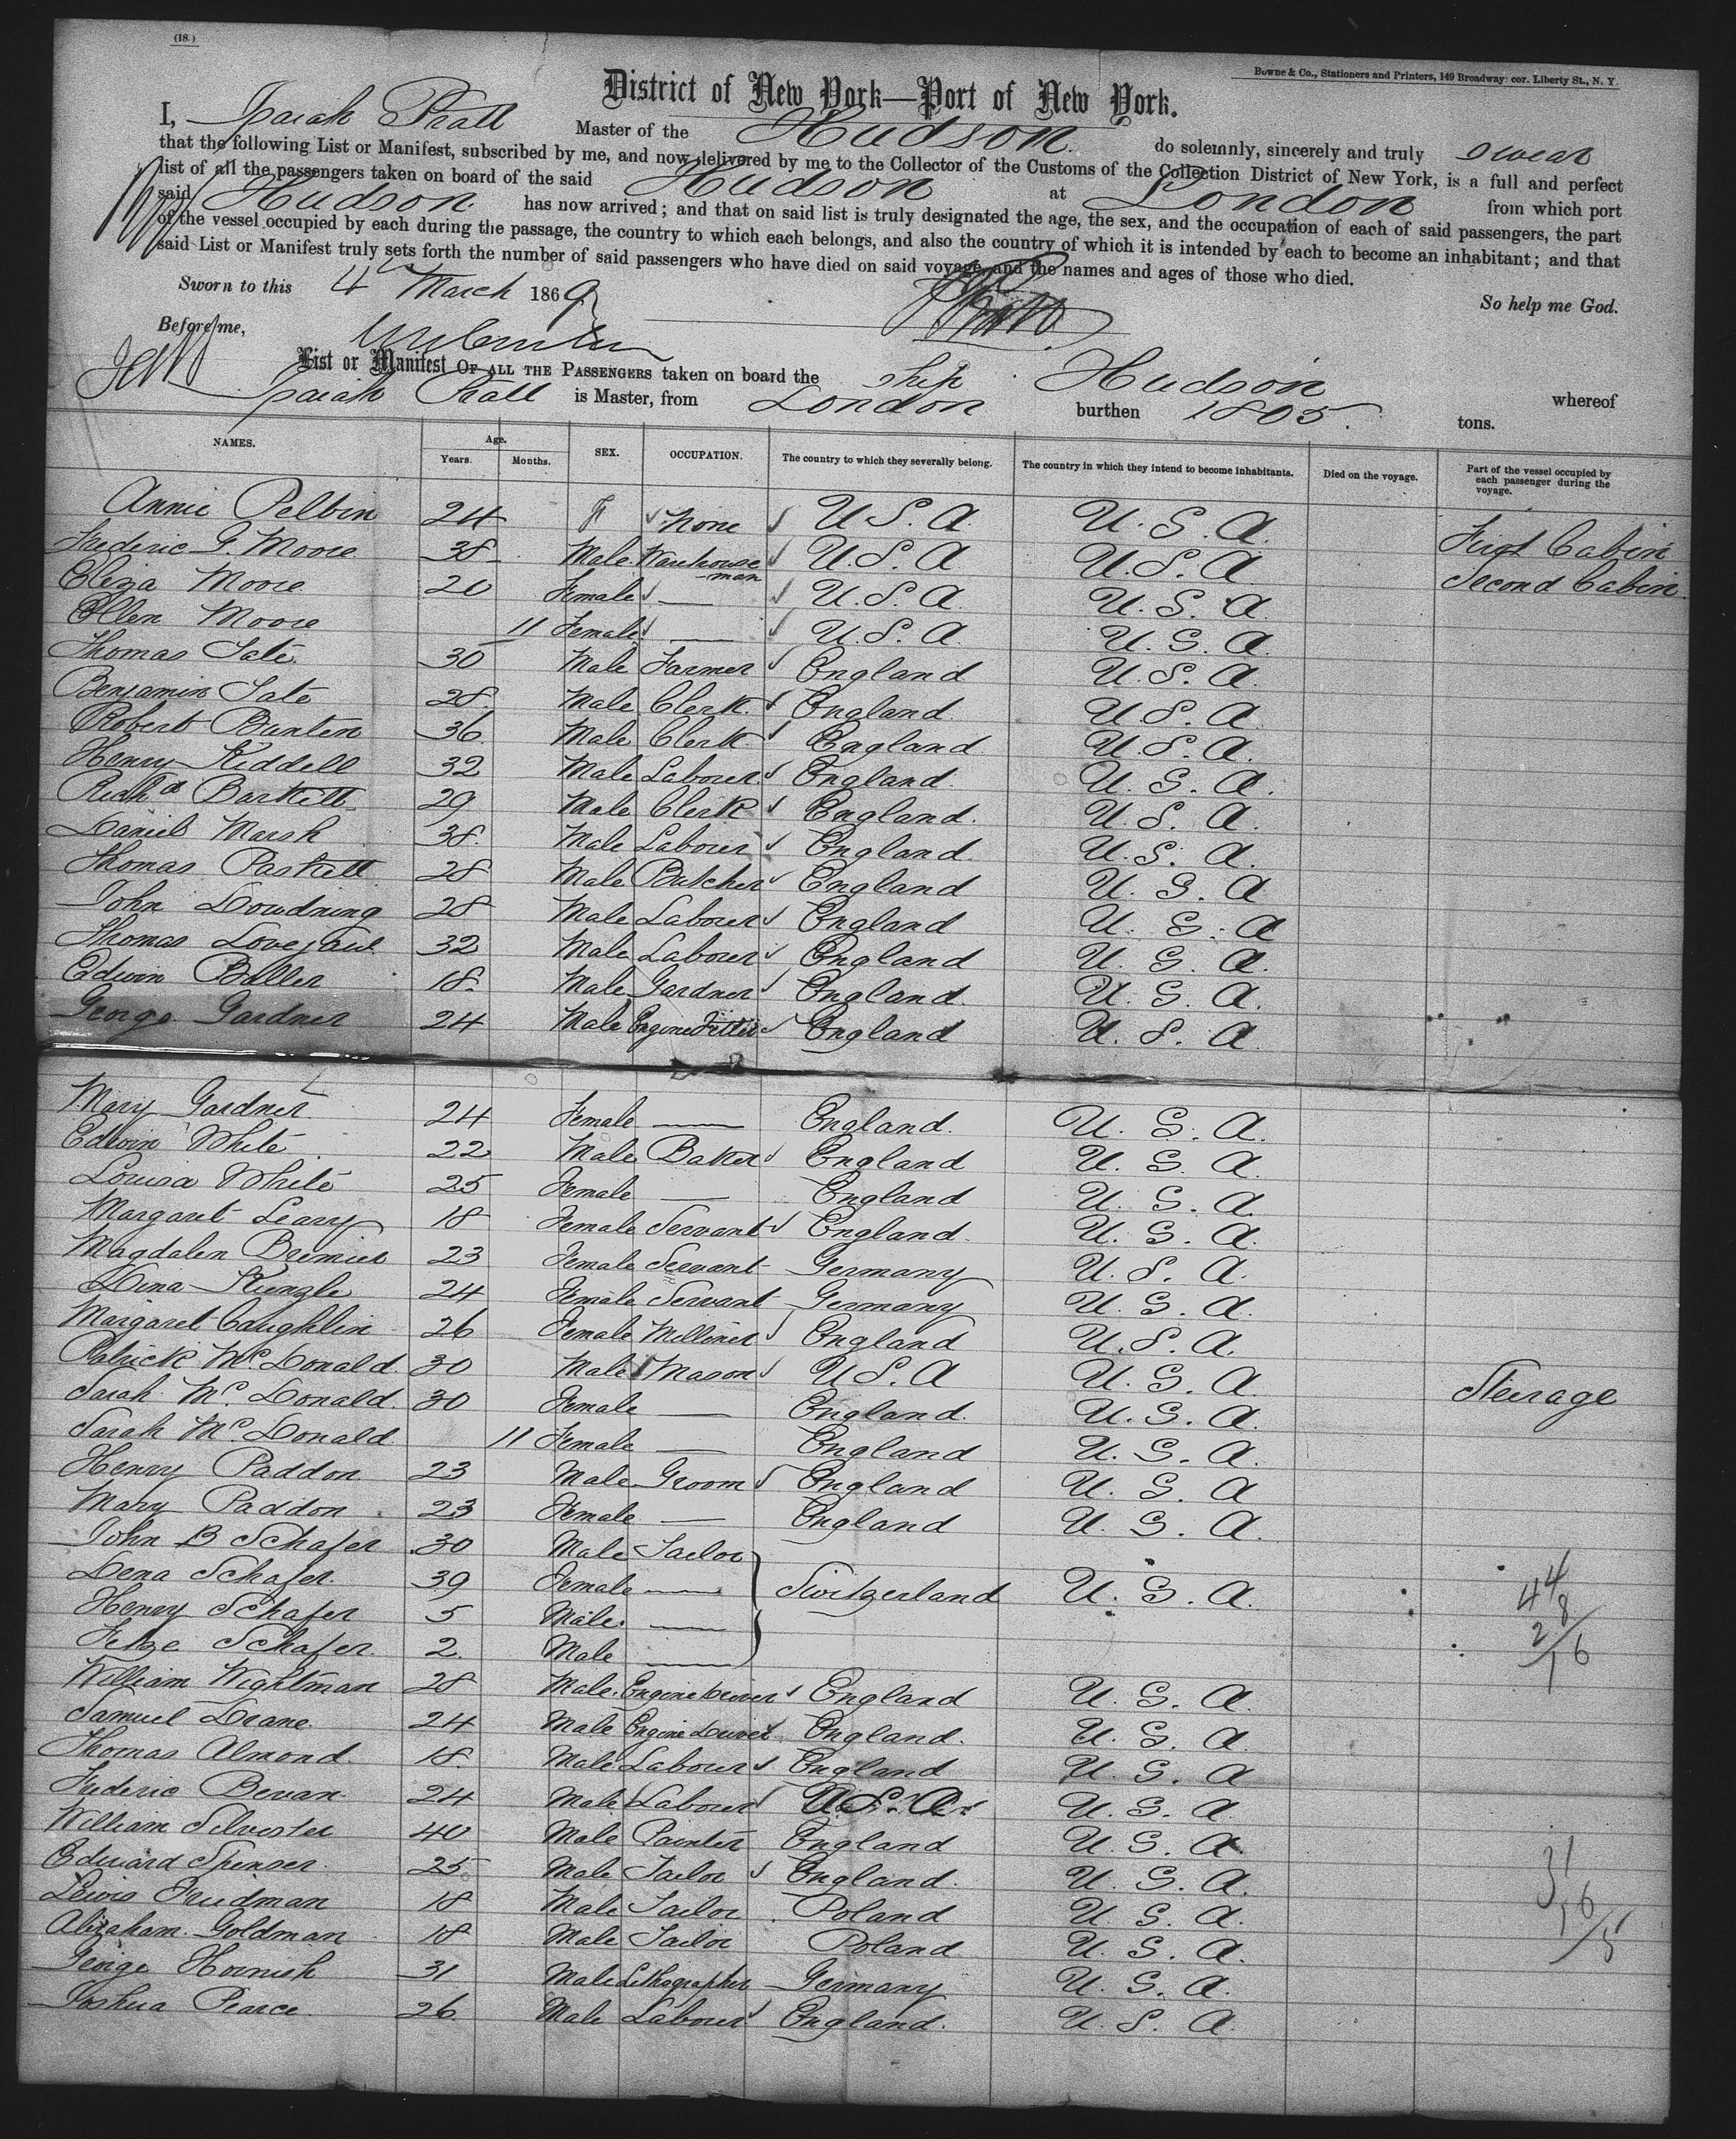 (18.)
Bowne & Co., Stationers and Printers, 149 Broadway cor. Liberty St., N. Y.
District of New York—Port of New York.
I, Isaiah Pratt Master of the Hudson. do solemnly, sincerely and truly swear
that the following List or Manifest, subscribed by me, and now delivered by me to the Collector of the Customs of the Collection District of New York, is a full and perfect
list of all the passengers taken on board of the said Hudson at London from which port
said Hudson has now arrived; and that on said list is truly designated the age, the sex, and the occupation of each of said passengers, the part
of the vessel occupied by each during the passage, the country to which each belongs, and also the country of which it is intended by each to become an inhabitant; and that
said List or Manifest truly sets forth the number of said passengers who have died on said voyage, and the names and ages of those who died.
So help me God.
Sworn to this 4 March 1869
Before me,
List or Manifest OF ALL THE PASSENGERS taken on board the ship Hudson whereof
Isaiah Pratt is Master, from London burthen 1805. tons.
NAMES. Age. Years. Months. SEX. OCCUPATION. The country to which they severally belong. The country in which they intend to become inhabitants. Died on the voyage. Part of the vessel occupied by each passenger during the voyage.
Annie 24 F None U S. A U. S. A. First Cabin
Frederic G. Moore 38 Male Warehouse-man U. S. A U. S. A Second Cabin
Eliza Moore 20 Female — U. S. A. U. S. A
Ellen Moore 11 Female — U. S. A. U. S. A.
Thomas Tate 30 Male Farmer England U. S. A.
Benjamin Tate 28. Male Clerk England. U S. A.
Robert Bunten 36. Male Clerk England. U S. A.
Henry Kiddell 32 Male Labourer England. U. S. A.
Richd Bartlett 29 Male Clerk England. U. S. A.
Daniel Marsh 38. Male Labourer England. U. S. A.
Thomas Paskell 28 Male Butcher England U. S. A
John Dowdning 28 Male Labourer England U. S. A
Thomas 32 Male Labourer England U. S. A.
Edwin Baller 18. Male Gardner England. U. S. A.
George Gardner 24 Male Engine Fitter England U. S. A
Mary Gardner. 24 Female — England. U. S. A.
Edwin White 22 Male Baker England U. S. A.
Louisa White 25 Female — England U. S. A
Margaret Leary 18 Female Servant England. U. S. A.
Magdalen 23 Female Servant Germany U. S. A.
Dina Kungle 24 Female Servant Germany U. S. A.
Margaret Coughlin 26 Female Milliner England U. S. A.
Patrick McDonald. 30 Male Mason U S. A U. S. A. Steerage
Sarah McDonald. 30 Female — England. U. S. A.
Sarah McDonald 11 Female — England U. S. A.
Henry Paddon 23 Male Groom England U. S. A
Mary Paddon 23 Female — England U. S. A.
John B Schafer 30 Male Tailor
Dena Schafer. 39 Female — Switzerland U. S. A.
Henry Schafer 5 Male. —
Schafer. 2. Male —
44
8
2/16
William Wightman 28 Male. Engine Driver England U. S. A.
Samuel Deane. 24 Male Engine Driver England. U. S. A
Thomas Almond. 18. Male Labourer England U. S. A
Frederic Bevan. 24 Male Labourer U. S. A. U. S. A.
William Silvester 40 Male Painter England U. S. A.
Edward Spenser. 25 Male Tailor England. U. S. A.
Lewis Freidman 18 Male Tailor Poland U. S. A.
Abraham. Goldman 18 Male Tailor Poland U. S. A.
George Hornish 31 Male Lithographer Germany U. S. A.
Joshua Pearce. 26 Male Labourer England. U. S. A.
31
16/5